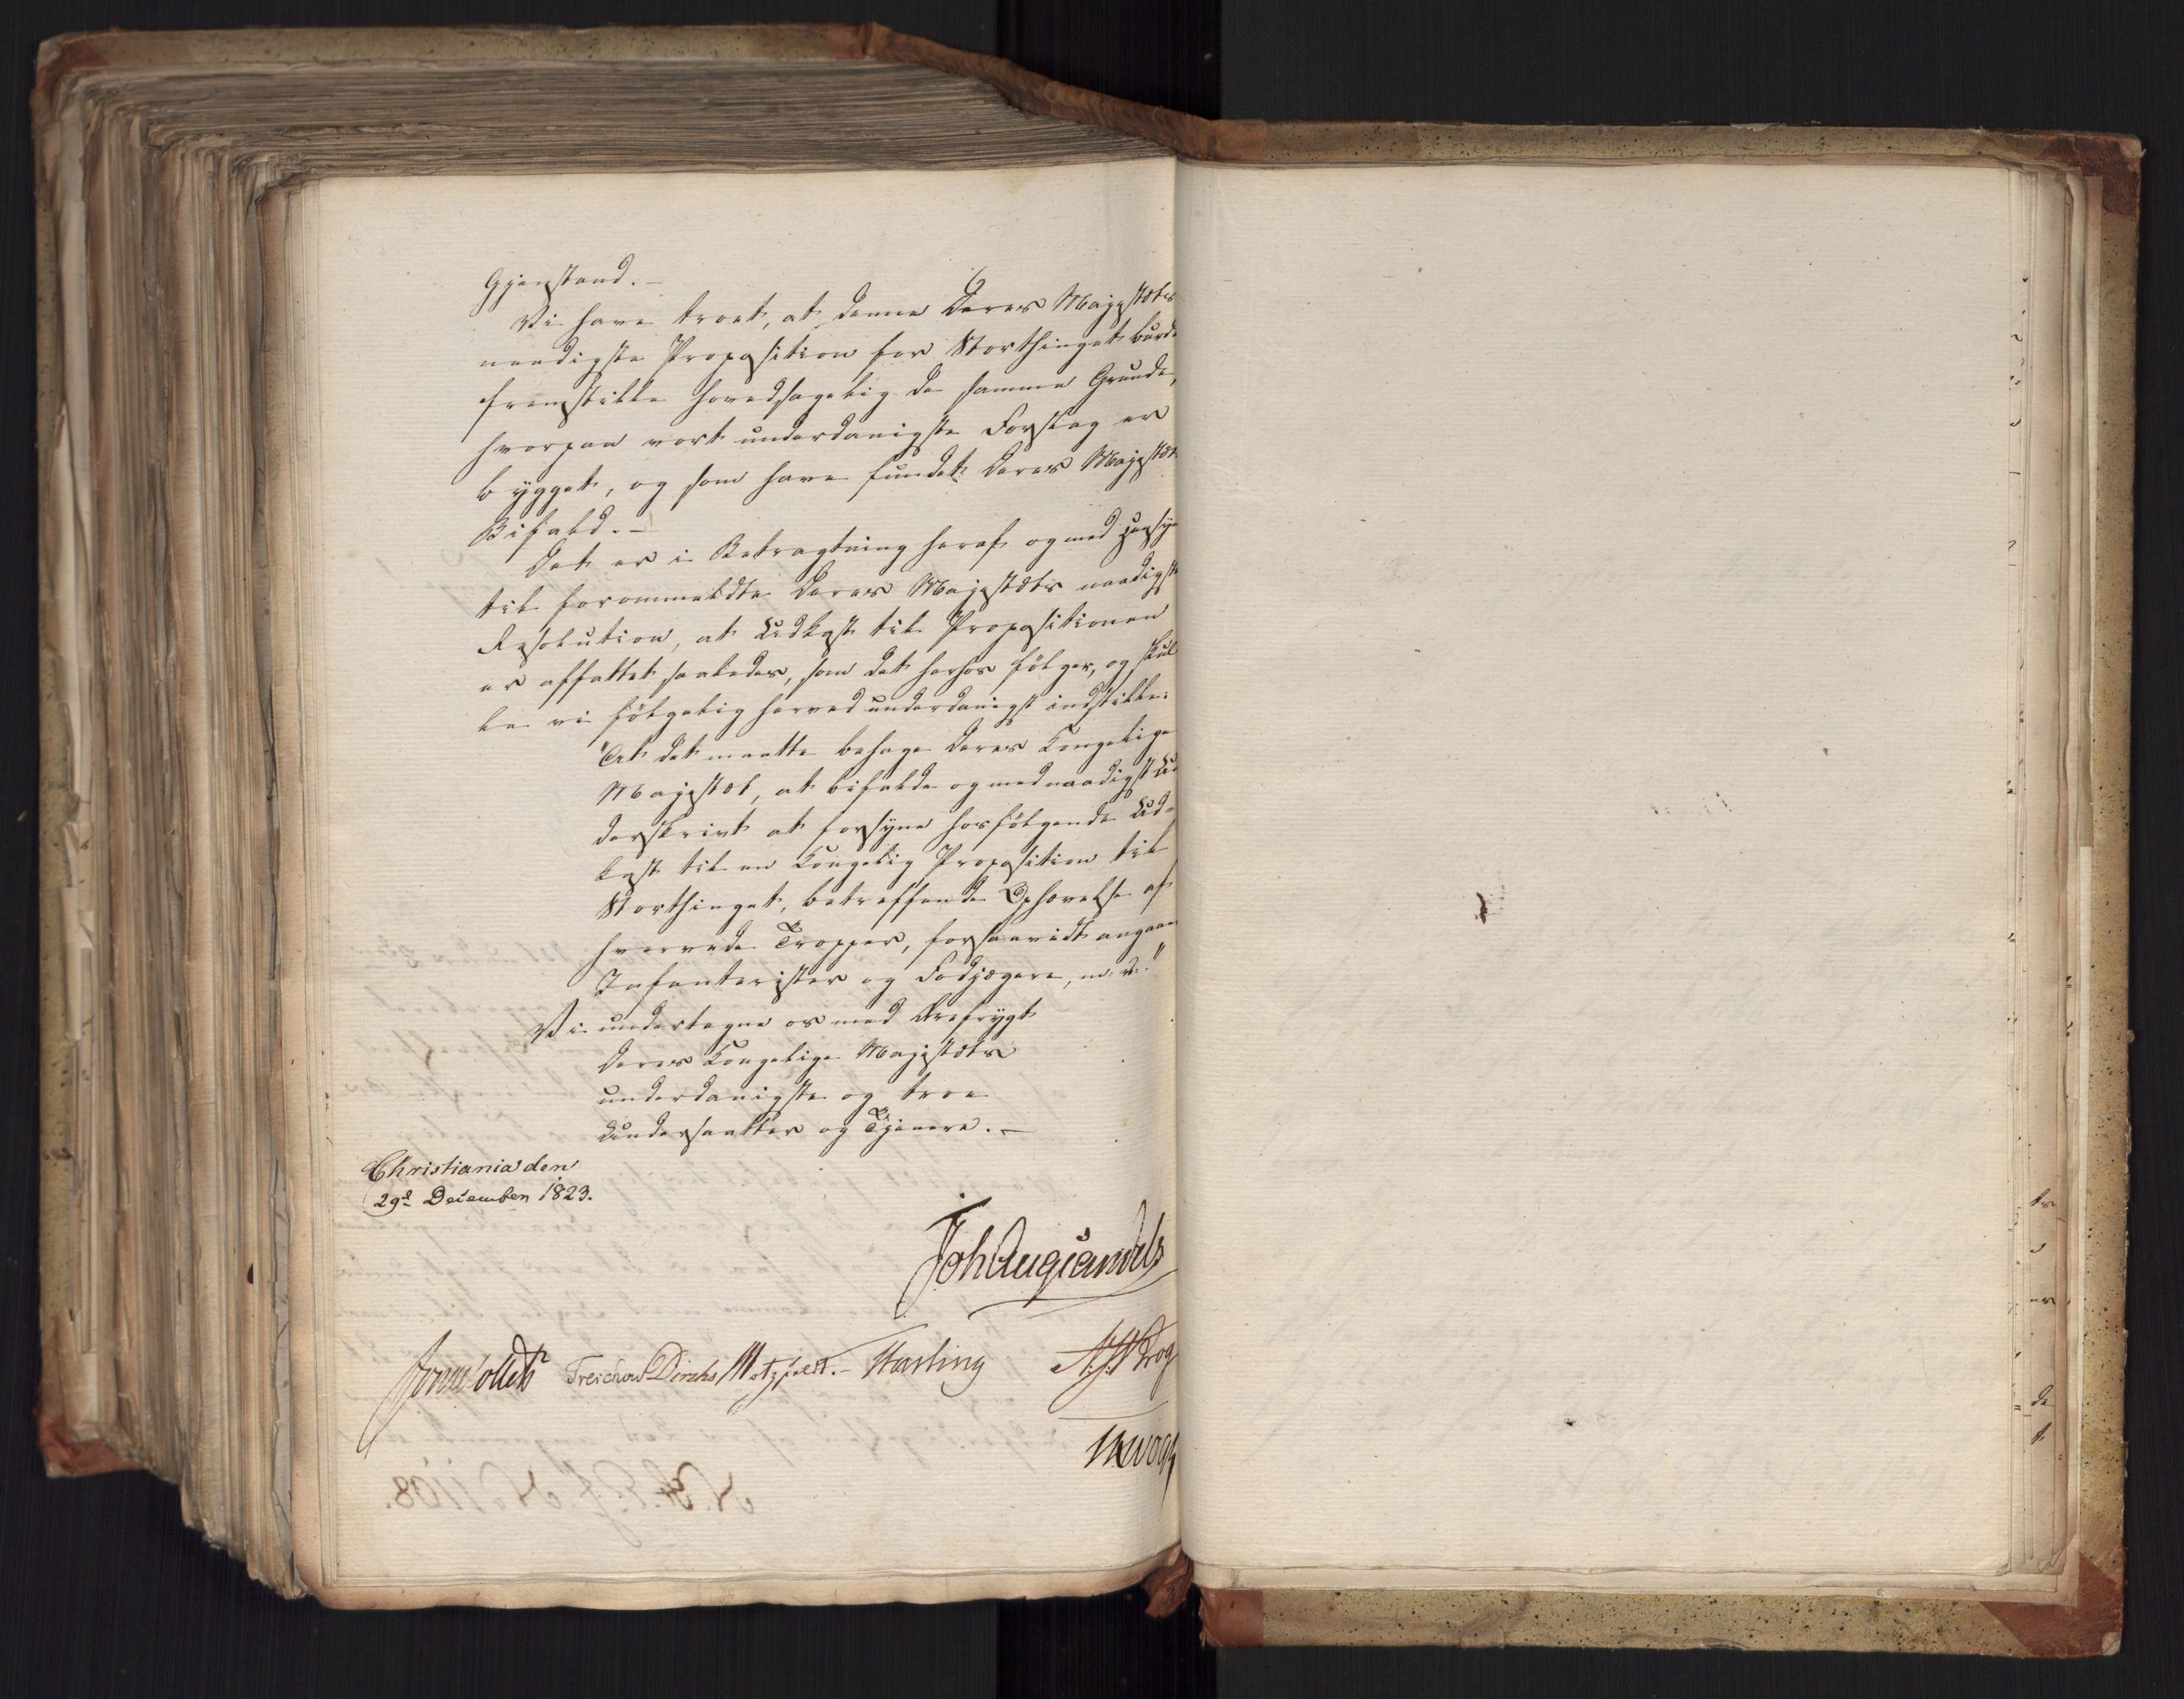 Gjenstand. –
Vi have troet, at denne Deres Majestæts
naadigste Proposition for Storthinget burde
fremstille hovedsagelig de samme Grunde,
hvorpaa vort underdanigste Forslag er
bygget, og som have fundet Deres Majestæts
Bifald. –
Det er i Betragtning heraf og med Hensyn
til forommeldte Deres Majestæts naadigste
Resolution, at Udkast til Propositionen
er affattet saaledes, som det herhos følger, og skul
le vi følgelig herved underdanigst indstille:
"At det maatte behage Deres Kongelige
Majestæt, at bifalde og med naadigst Un
derskrivt at forsyne hosfølgende Ud-
kast til en Kongelig Proposition til
Storthinget, betreffende Ophævelse af
hvervede Tropper, forsaavidt angaaer
Infanterister og Fodjægere, m: v:"
Vi undertegne os med Ærefrygt
Deres Kongelige Majestæts
underdanigste og troe
Undersaatter og Tjenere. –
Christiania den
29de December 1823.
Joh Aug Sandels
Jonas Collett Treschow Diriks Motzfeldt. – Fasting